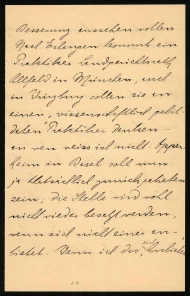 Besserung einsehen wollen.
Nach Erlangen kommt ein
Praktiker, Landgerichtsrath
Allfeld in München, und
in Tübingen sollen sie an
einen, wissenschaftlich gebil
deten Praktiker denken –
an wen weiss ich nicht. Oppen
heim in Basel soll uns
ja thatsächlich zurückgehalten
sein, die Stelle wird wohl
nicht wieder besetzt werden,
wenn sich nicht einer an-
bietet. Wenn ich das